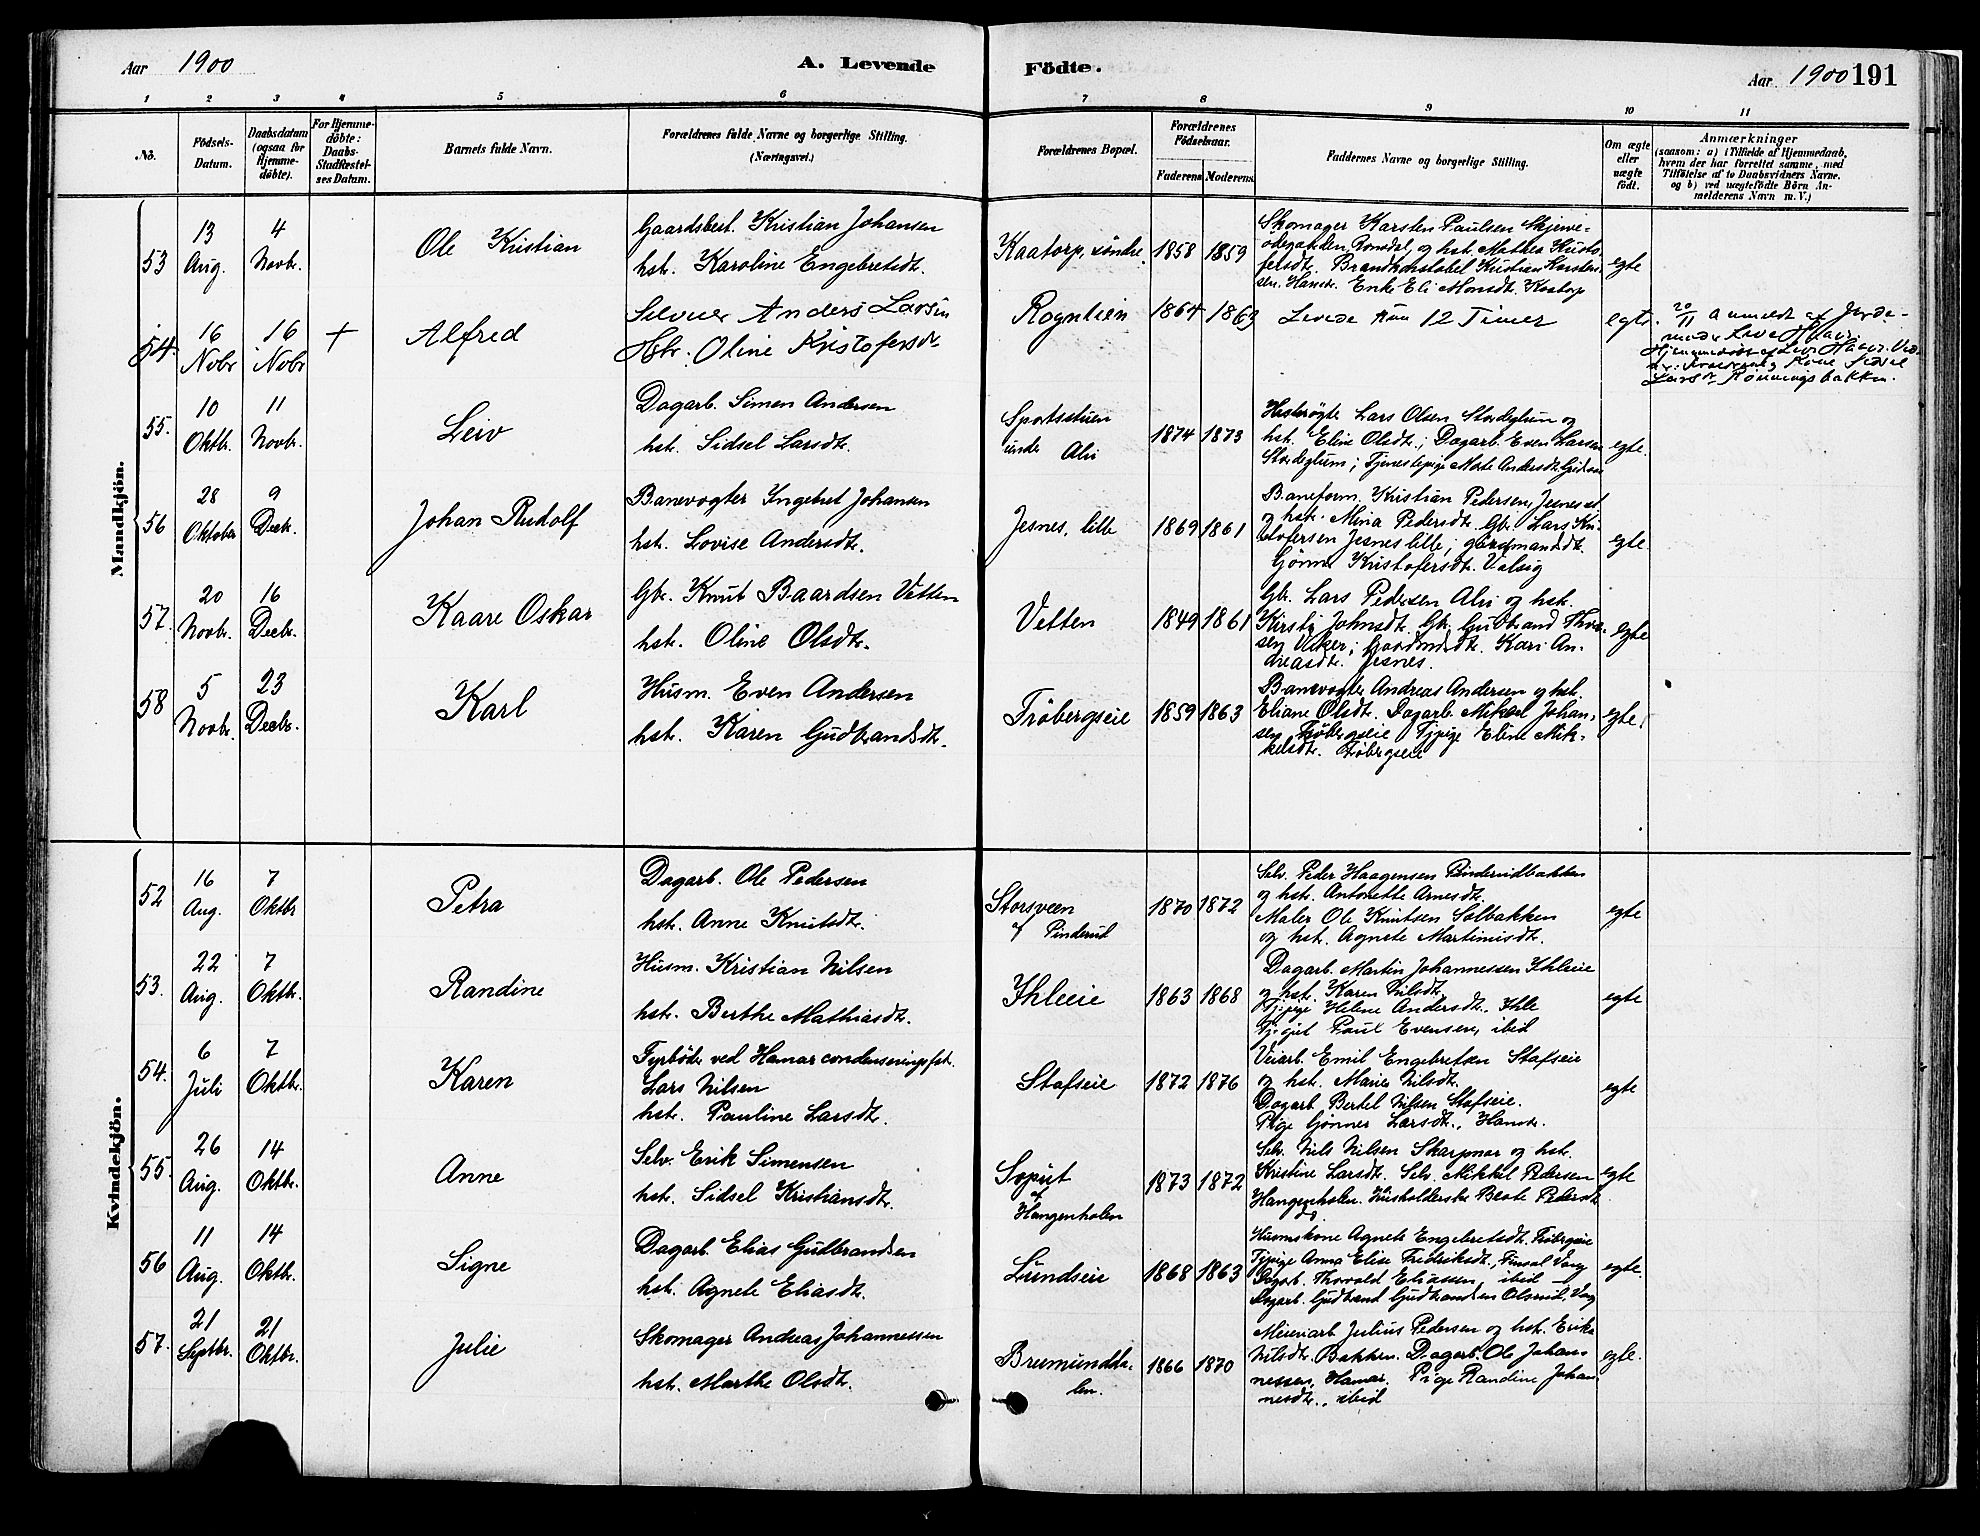 Aar 1900
A. Levende
Födte.
Aar 1900 191
1 2 3 4 5 6 7 8 9 10 11
No.
Födsels-
Datum.
Daabsdatum
(ogsaa for
Hjemme-
döbte).
For Hjemme-
döbte:
Daabs-
Stadfæstel-
ses Datum.
Barnets fulde Navn.
Forældrenes fulde Navne og borgerlige Stilling.
(Næringsvei.)
Forældrenes Bopæl.
Forældrenes
Födselsaar.
Faderens Moderens
Faddernes Navne og borgerlige Stilling.
Om ægte
eller
uægte
födt.
Anmærkninger
(saasom: a) i Tilfælde af Hjemmedaab,
hvem der har forrettet samme, med
Tilföielse af to Daabsvidners Navne.
og b) ved uægtefödte Börn An-
melderens Navn m. V.)
Mandkjön.
53
13
Aug.
4
Novbr.
Ole Kristian
Gaardsbest. Kristian Johansen
hst. Karoline Engebretsdt.
Kaatorp, söndre
1858 1859
Skomager Karsten Paulsen
Romedal, og hst. Mathea Kristo-
fersdt. Brandkonstabel Kristian Karsten-
sen. Hamar. Enke Eli Monsdt. Kaatorp
egte
54.
16
Novbr
16
Novbr
+
Alfred
Selveier Anders Larsen
Hst. Oline Kristofersdt
Rognlien
1864 1863
Levede kun 12 Timer
egte.
20/11 Anmeldt af Jorde-
moder
Larsdt Rönningsbakken.
55.
10
Oktbr.
11
Novbr.
Leiv
Dagarb. Simen Andersen
hst. Sidsel Larsdt.
Sportsstuen
under Alvi
1874 1873
Lars Olsen Stordeglum og
hst. Eline Olsdt.; Dagarb. Even Larsen
Stordeglum; Tjenestepige Marte Andersdt.
egte.
56
28
Oktober
9
Decb.
Johan Rudolf
Banevogter Ingebret Johansen
hst. Lovise Andersdt.
Jesnes, lille
1869 1861
Baneform. Kristian Pedersen, Jesnes
og hst. Mina Pedersdt. Gbr. Lars Kri-
stofersen Jesnes lille; gaardmandsdt.
Gjönner Kristofersdt. Valsig
egte.
57.
20
Novbr.
16
Decbr.
Kaare Oskar
Gbr. Knut Baardsen Vetten
hst. Oline Olsdt.
Vetten
1849 1861
Gbr. Lars Pedersen Alvi og hst.
Kirsti Johnsdt. Gbr. Gudbrand
sen; Kari An-
dreasdt. Jesnes.
egte
58
5
Novbr.
23
Decbr.
Karl
Husm. Even Andersen
hst. Karen Gudbrandsdt.
Fröbergseie
1859 1863
Banevogter Andreas Andersen og hst.
Eliane Olsdt. Dagarb. Mikael Johan-
sen Fröbergseie Tjpige Eline Mik-
kelsdt. Fröbergseie
egte.
Kvindekjön.
52
16
Aug.
7
Oktbr
Petra
Dagarb. Ole Pedersen
hst. Anne Knutsdt.
Storsveen
af Pinderud
1870 1872
Selv. Peder Haagensen Pinderudbakken
og hst. Antonette Arnesdt.
Maler Ole Knutsen Solbakken
og hst. Agnete Martinusdt.
egte
53.
22
Aug.
7
Oktbr.
Randine
Husm. Kristian Nilsen
hst. Berthe Mathiasdt.
Ihleeie
1863 1868
Dagarb. Martin Johannessen Ihleeie
og hst. Karen Nilsdt.
Tjpige Helene Andersdt. Ihle
Tj.gut Paul Evensen, ibid
egte
54.
6
Juli
7
Oktbr.
Karen
Fyrböder ved Hamar condenseringsfbr.
Lars Nilsen
hst. Pauline Larsdt.
Stafseie
1872 1876
Veiarb. Emil Engebretsen Stafseie
og hst. Marie Nilsdt.
Dagarb Bertel Nilsen Stafseie.
Pige Gjönner Larsdt., Hamar.
egte
55.
26
Aug.
14
Oktbr.
Anne
Selv. Erik Simensen
hst. Sidsel Kristiansdt.
Soput
af
Hangenholen
1873 1872
Selv. Nils Nilsen Skarpnor og hst.
Kristine Larsdt. Selv. Mikkel Pedersen
Hangenholen. Husholderske Beate Pedersdt
do
egte
56
11
Aug.
14
Oktbr.
Signe
Dagarb. Elias Gudbrandsen
hst. Agnete Eliasdt.
Lundseie
1868 1863
Husmskone Agnete Engebretsdt. Fröbergseie
Tjpige Anna Elise Fredriksdt., Finsal Vang
Dagarb. Thorvald Eliassen, ibid
Dagarb. Gudbrand Gudbrandsen Olsrud. Vang
egte.
57.
21
Septbr.
21
Oktbr.
Julie
Skomager Andreas Johannessen
hst. Marthe Olsdt.
Brumundda-
len.
1866 1870
Meieriarb Julius Pedersen og hst. Erika
Nilsdt. Bakken. Dagarb. Ole Johan-
nessen, Hamar. Pige Randine Johan-
nesdt., ibid
egte.